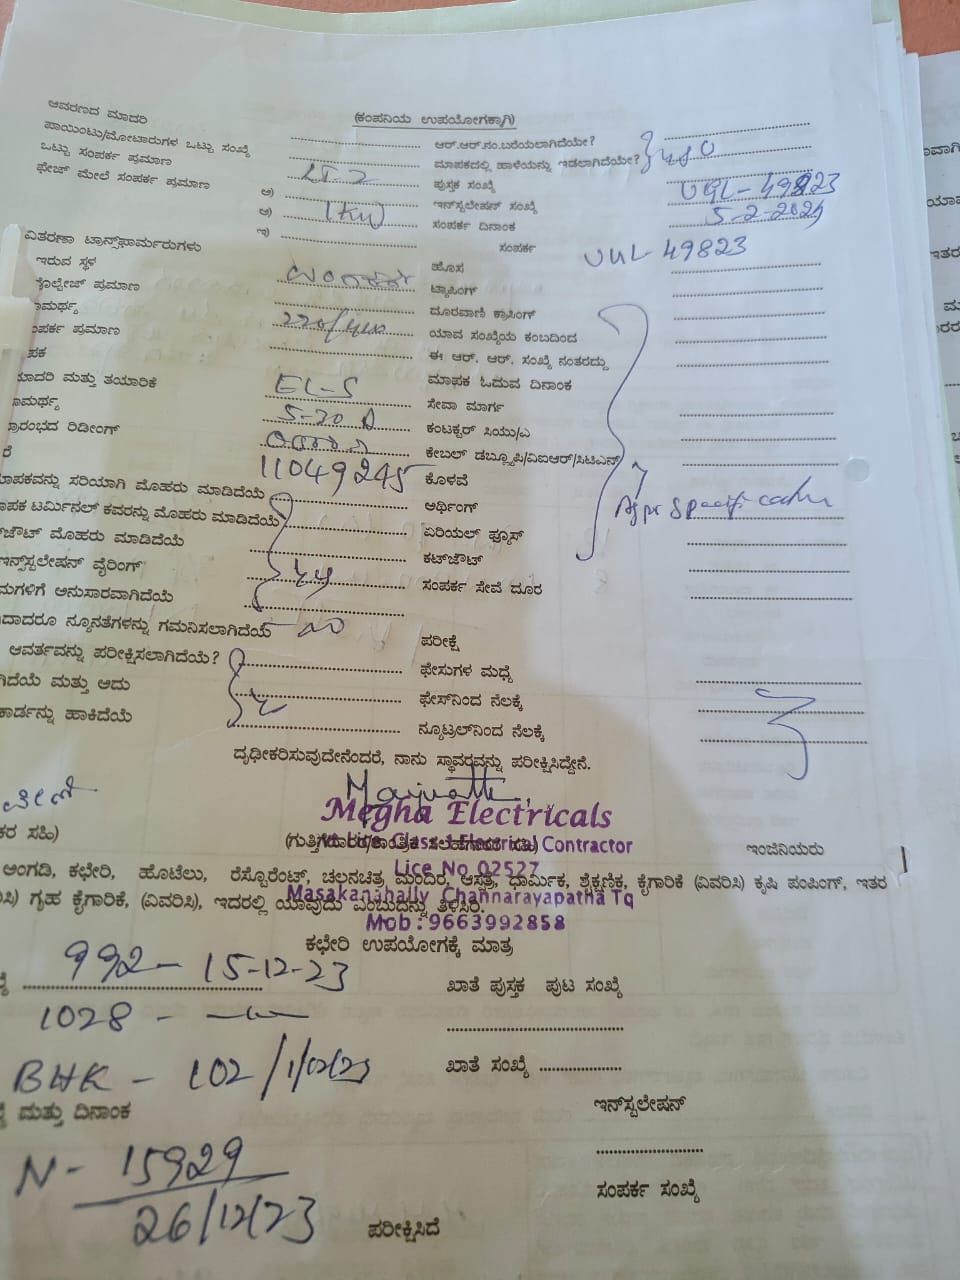 (ಕಂಪನಿಯ ಉಪಯೋಗಕ್ಕಾಗಿ)
ಆವರಣದ ಮಾದರಿ
ಆರ್.ಆರ್.ನಂ.ಬರೆಯಲಾಗಿದೆಯೇ?
ಪಾಯಿಂಟು/ಮೋಟಾರುಗಳ ಒಟ್ಟು ಸಂಖ್ಯೆ
ಮಾಪಕದಲ್ಲಿ ಹಾಳೆಯನ್ನು ಇಡಲಾಗಿದೆಯೇ?
ಒಟ್ಟು ಸಂಪರ್ಕ ಪ್ರಮಾಣ LT-2
ಪುಸ್ತಕ ಸಂಖ್ಯೆ
ಫೇಜ್ ಮೇಲೆ ಸಂಪರ್ಕ ಪ್ರಮಾಣ ಅ)
ಇನ್‌ಸ್ಟಲೇಷನ್ ಸಂಖ್ಯೆ 49823
ಆ) 1KW
ಸಂಪರ್ಕ ದಿನಾಂಕ 5-2-2024
ಇ)
ಸಂಪರ್ಕ 49823
ವಿತರಣಾ ಟ್ರಾನ್ಸ್‌ಫಾರ್ಮರುಗಳು
ಹೊಸ
ಇರುವ ಸ್ಥಳ
ಟ್ಯಾಪಿಂಗ್
ವೋಲ್ಟೇಜ್ ಪ್ರಮಾಣ
ದೂರವಾಣಿ ಕ್ರಾಸಿಂಗ್
ಾಮರ್ಥ್ಯ
ಯಾವ ಸಂಖ್ಯೆಯ ಕಂಬದಿಂದ
ಂಪರ್ಕ ಪ್ರಮಾಣ
ಈ ಆರ್. ಆರ್. ಸಂಖ್ಯೆ ನಂತರದ್ದು
ಪಕ
ಮಾಪಕ ಓದುವ ದಿನಾಂಕ
ಮಾದರಿ ಮತ್ತು ತಯಾರಿಕೆ EL-S
ಸೇವಾ ಮಾರ್ಗ
ಾಮರ್ಥ್ಯ 5-20 A
ಕಂಟಕ್ಟರ್ ಸಿಯು/ಎ
ಪ್ರಾರಂಭದ ರಿಡೀಂಗ್
ಕೇಬಲ್ ಡಬ್ಲ್ಯೂಪಿ/ವಿಐಆರ್/ಸಿಟಿಎಸ್
ರೆ 11049245
ಕೊಳವೆ
ಮಾಪಕವನ್ನು ಸರಿಯಾಗಿ ಮೊಹರು ಮಾಡಿದೆಯೆ
ಅರ್ಥಿಂಗ್
ಾಪಕ ಟರ್ಮಿನಲ್ ಕವರನ್ನು ಮೊಹರು ಮಾಡಿದೆಯೆ
ಏರಿಯಲ್ ಫ್ಯೂಸ್
್‌ಜೌಟ್ ಮೊಹರು ಮಾಡಿದೆಯೆ
ಕಟ್‌ಜೌಟ್
ಇನ್‌ಸ್ಟಲೇಷನ್ ವೈರಿಂಗ್
ಸಂಪರ್ಕ ಸೇವೆ ದೂರ
ಮಗಳಿಗೆ ಅನುಸಾರವಾಗಿದೆಯೆ
ದಾದರೂ ನ್ಯೂನತೆಗಳನ್ನು ಗಮನಿಸಲಾಗಿದೆಯೆ
ಪರೀಕ್ಷೆ
ಆವರ್ತವನ್ನು ಪರೀಕ್ಷಿಸಲಾಗಿದೆಯೆ?
ಫೇಸುಗಳ ಮಧ್ಯೆ
ಗಿದೆಯೆ ಮತ್ತು ಅದು
ಫೇಸ್‌ನಿಂದ ನೆಲಕ್ಕೆ
ಕಾರ್ಡನ್ನು ಹಾಕಿದೆಯೆ
ನ್ಯೂಟ್ರಲ್‌ನಿಂದ ನೆಲಕ್ಕೆ
ದೃಢೀಕರಿಸುವುದೇನೆಂದರೆ, ನಾನು ಸ್ಥಾವರವನ್ನು ಪರೀಕ್ಷಿಸಿದ್ದೇನೆ.
Megha Electricals
ಕರ ಸಹಿ)
Class I Electrical Contractor
ಇಂಜಿನಿಯರು
Lice No 02527
ಅಂಗಡಿ, ಕಛೇರಿ, ಹೊಟೆಲು, ರೆಸ್ಟೋರೆಂಟ್, ಚಲನಚಿತ್ರ ಮಂದಿರ, ಆಸ್ಪತ್ರೆ, ಧಾರ್ಮಿಕ, ಶೈಕ್ಷಣಿಕ, ಕೈಗಾರಿಕೆ (ವಿವರಿಸಿ) ಕೃಷಿ ಪಂಪಿಂಗ್, ಇತರ
ಸಿ) ಗೃಹ ಕೈಗಾರಿಕೆ, (ವಿವರಿಸಿ), ಇದರಲ್ಲಿ ಯಾವುದು ಎಂಬುದನ್ನು ತಿಳಿಸಿರಿ.
Masakanahally Channarayapatna Tq
Mob : 9663992858
ಕಛೇರಿ ಉಪಯೋಗಕ್ಕೆ ಮಾತ್ರ
992 - 15-12-23
ಖಾತೆ ಪುಸ್ತಕ ಪುಟ ಸಂಖ್ಯೆ
1028 -
BHK - 102/
ಖಾತೆ ಸಂಖ್ಯೆ
ಮತ್ತು ದಿನಾಂಕ
ಇನ್‌ಸ್ಟಲೇಷನ್
N - 15929
26/12/23
ಸಂಪರ್ಕ ಸಂಖ್ಯೆ
ಪರೀಕ್ಷಿಸಿದೆ